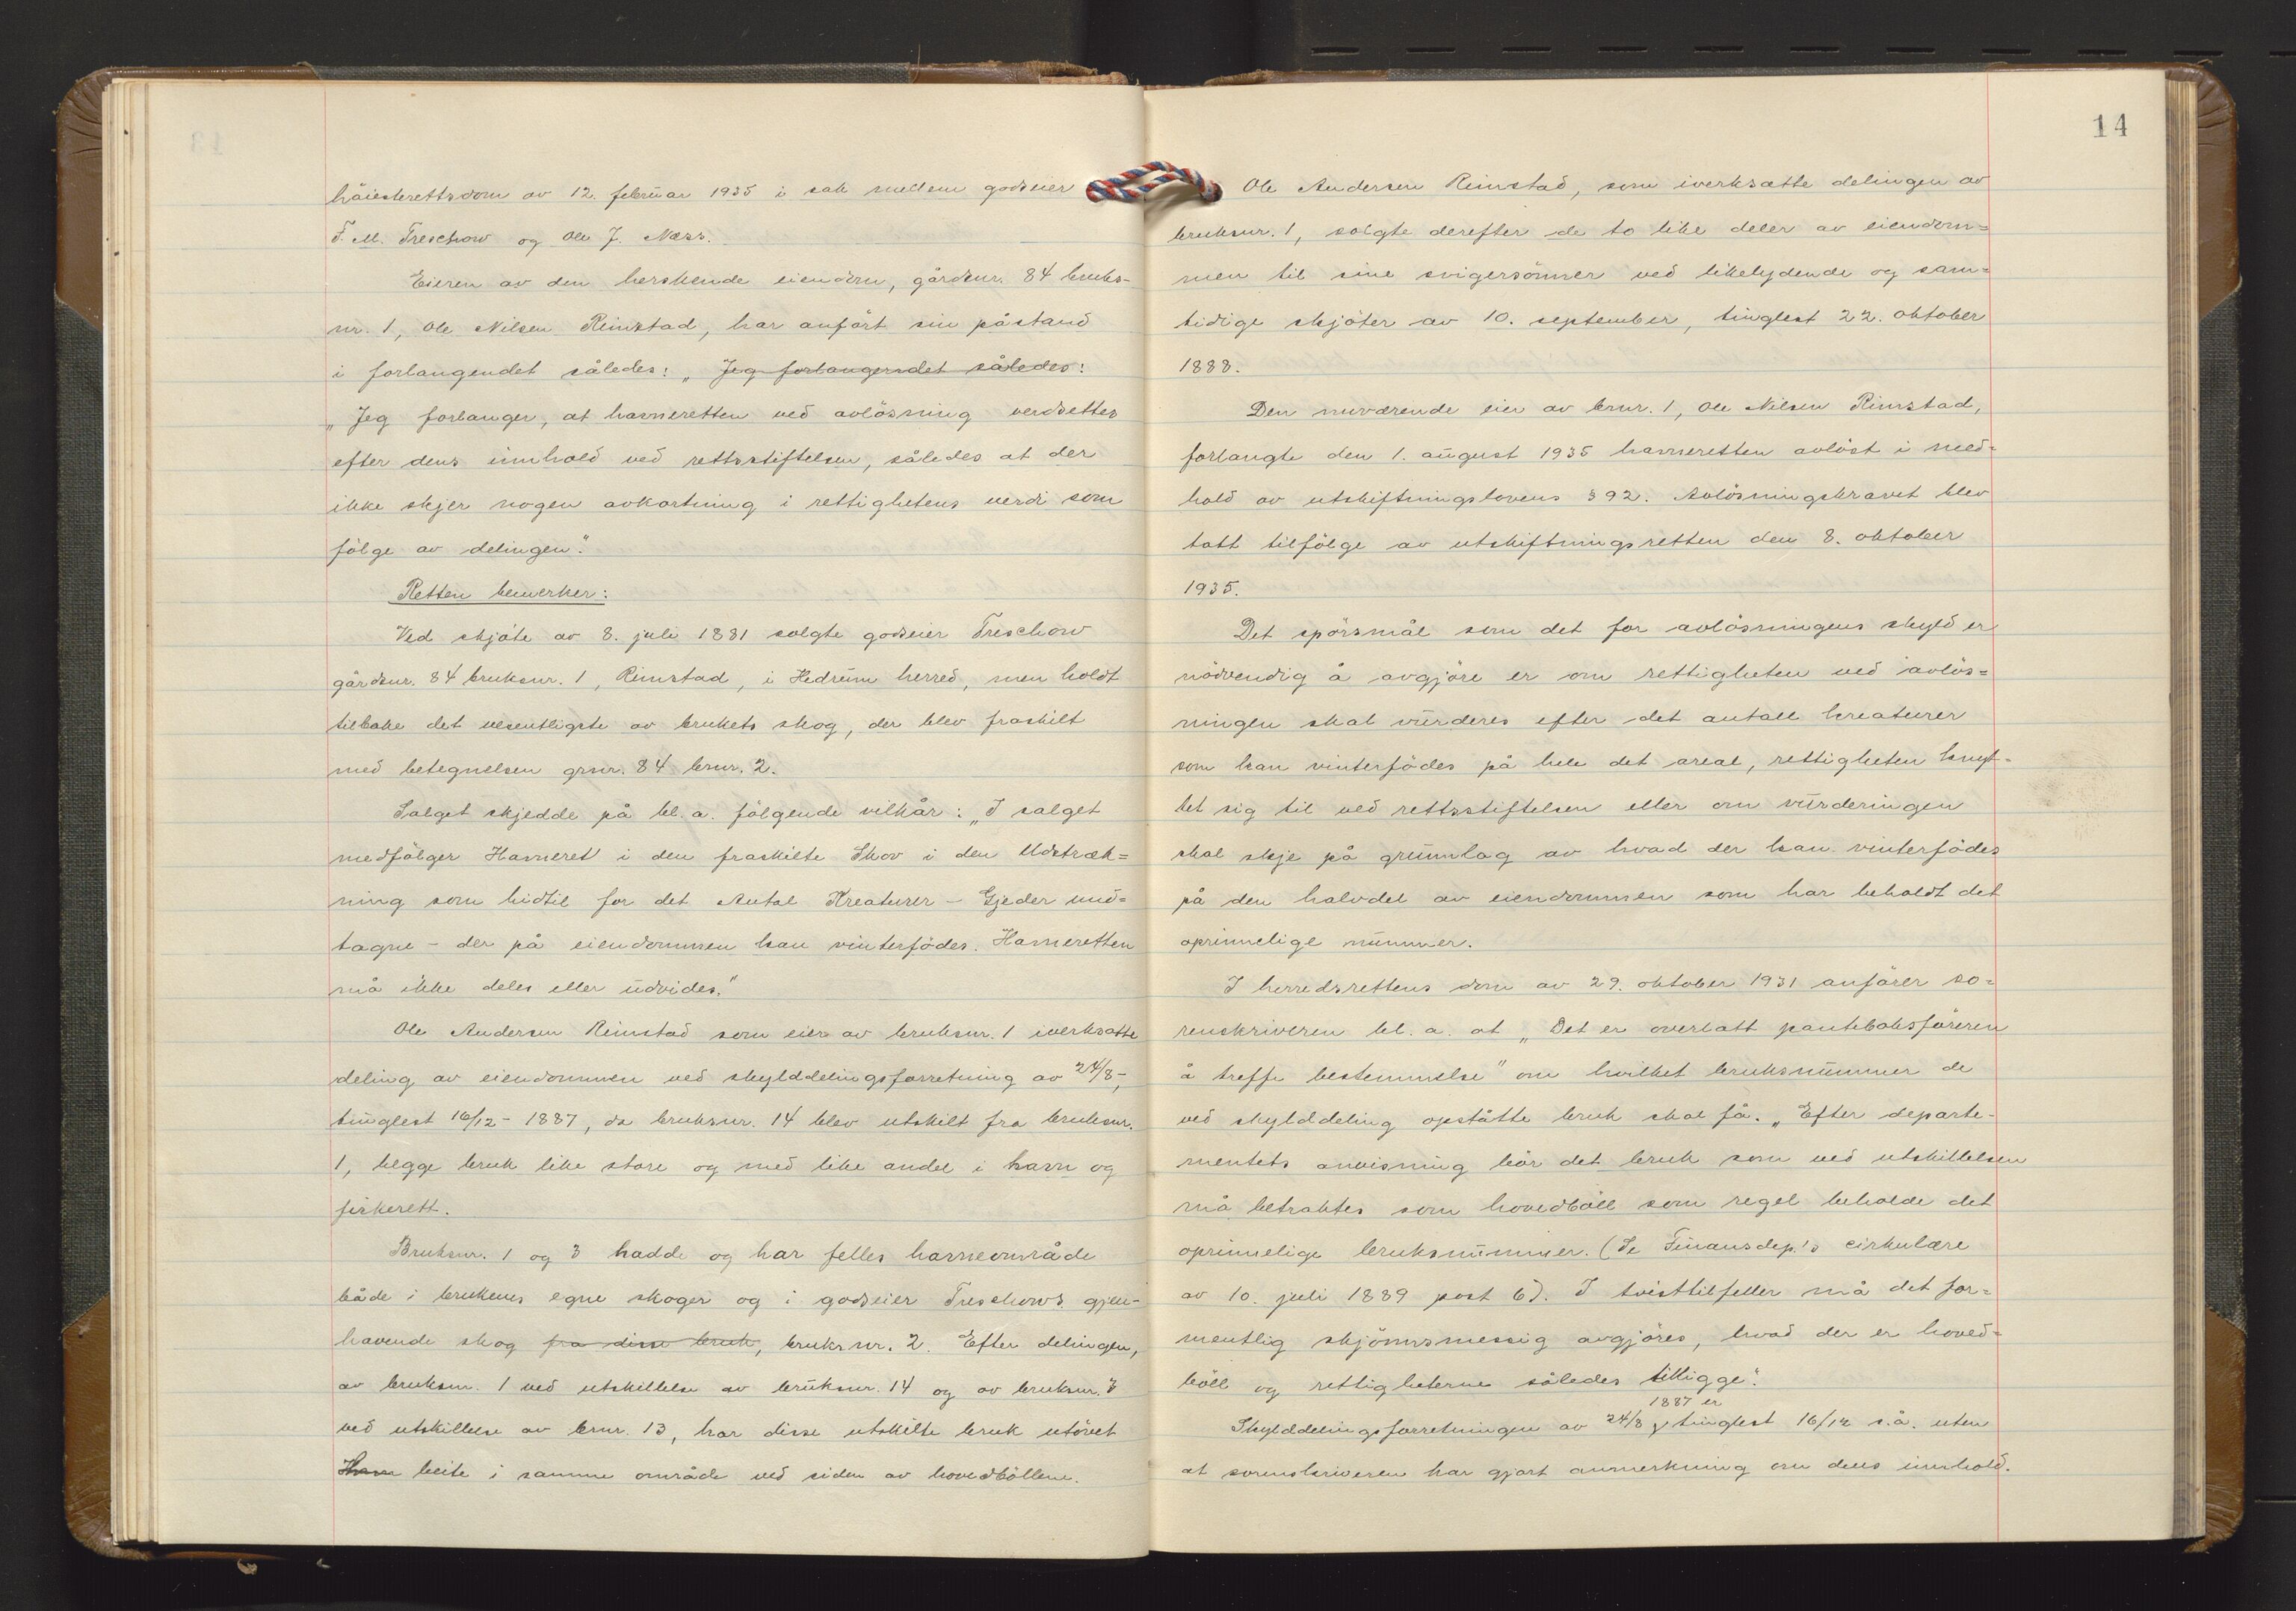 höiesterettsdom av 12. februar 1935 i sak mellem godseier
F. M. Treschow og Ole J. Næss.
Eieren av den herskende eiendom, gårdsnr. 84 bruks-
nr. 1, Ole Nilsen Rimstad, har anført sin påstand
i forlangendet således: „Jeg forlangendet således:
„Jeg forlanger, at havneretten ved avlösning verdsettes
efter dens innhold ved rettsstiftelsen, således at der
ikke skjer nogen avkortning i rettighetens verdi som
fölge av delingen."
Retten bemerker:
Ved skjöte av 8. juli 1881 solgte godseier Treschow
gårdsnr. 84 bruksnr. 1, Rimstad, i Hedrum herred, men holdt
tilbake det vesentligste av brukets skog, der blev fraskilt
med betegnelsen grnr. 84 brnr. 2.
Salget skjedde på bl. a. fölgende vilkår: „I salget
medfölger Havneret i den fraskilte Skov i den Udstræk=
ning som hidtil for det Antal Kreaturer - Gjeder und=
tagne - der på eiendommen kan vinterfödes. Havneretten
må ikke deles eller udvides."
Ole Andersen Rimstad som eier av bruksnr. 1 iverksatte
deling av eiendommen ved skylddelingsforretning av 24/8-,
tinglest 16/12- 1887, da bruksnr. 14 blev utskilt fra bruksnr.
1, begge bruk like store og med like andel i havn og
fiskerett.
Bruksnr. 1 og 3 hadde og har felles havneområde
både i brukenes egne skoger og i godseier Treschows gjen-
havende skog fra disse bruk, bruksnr. 2. Efter delingen,
av bruksnr. 1 ved utskillelse av bruksnr. 14 og av bruksnr. 3
ved utskillelse av brnr. 13, har disse utskilte bruk utövet
Havn beite i samme område ved siden av hovedböllene.
14
Ole Andersen Rimstad, som iverksatte delingen av
bruksnr. 1, solgte derefter de to like deler av eiendom=
men til sine svigersönner ved likelydende og sam=
tidige skjöter av 10. september, tinglest 22. oktober
1888.
Den nuværende eier av brnr. 1, Ole Nilsen Rimstad,
forlangte den 1. august 1935 havneretten avlöst i med=
hold av utskiftningslovens § 92. Avlösningskravet blev
tatt tilfölge av utskiftningsretten den 8. oktober
1935.
Det spörsmål som det for avlösningens skyld er
nödvendig å avgjöre er om rettigheten ved avlös=
ningen skal vurderes efter det antall kreaturer
som kan vinterfödes på hele det areal, rettigheten knyt=
tet sig til ved rettsstiftelsen eller om vurderingen
skal skje på grunnlag av hvad der kan vinterfödes
på den halvdel av eiendommen som har beholdt det
oprinnelige nummer.
I herredsrettens dom av 29. oktober 1931 anförer so=
renskriveren bl. a. at „Det er overlatt panteboksföreren
å treffe bestemmelse" om hvilket bruksnummer de
ved skylddeling opståtte bruk skal få. „Efter departe-
mentets anvisning bör det bruk som ved utskillelsen
må betraktes som hovedböll som regel beholde det
oprinnelige bruksnummer. (Se Finansdep.'s cirkulære
av 10. juli 1889 post 6). I tvisttilfeller må det for=
mentlig skjönnsmessig avgjöres, hvad der er hoved=
böll og rettigheterne således tilligge".
1887 er
Skylddelingsforretningen av 24/8 tinglest 16/12 s.å. uten
at sorenskriveren har gjort anmerkning om dens innhold.